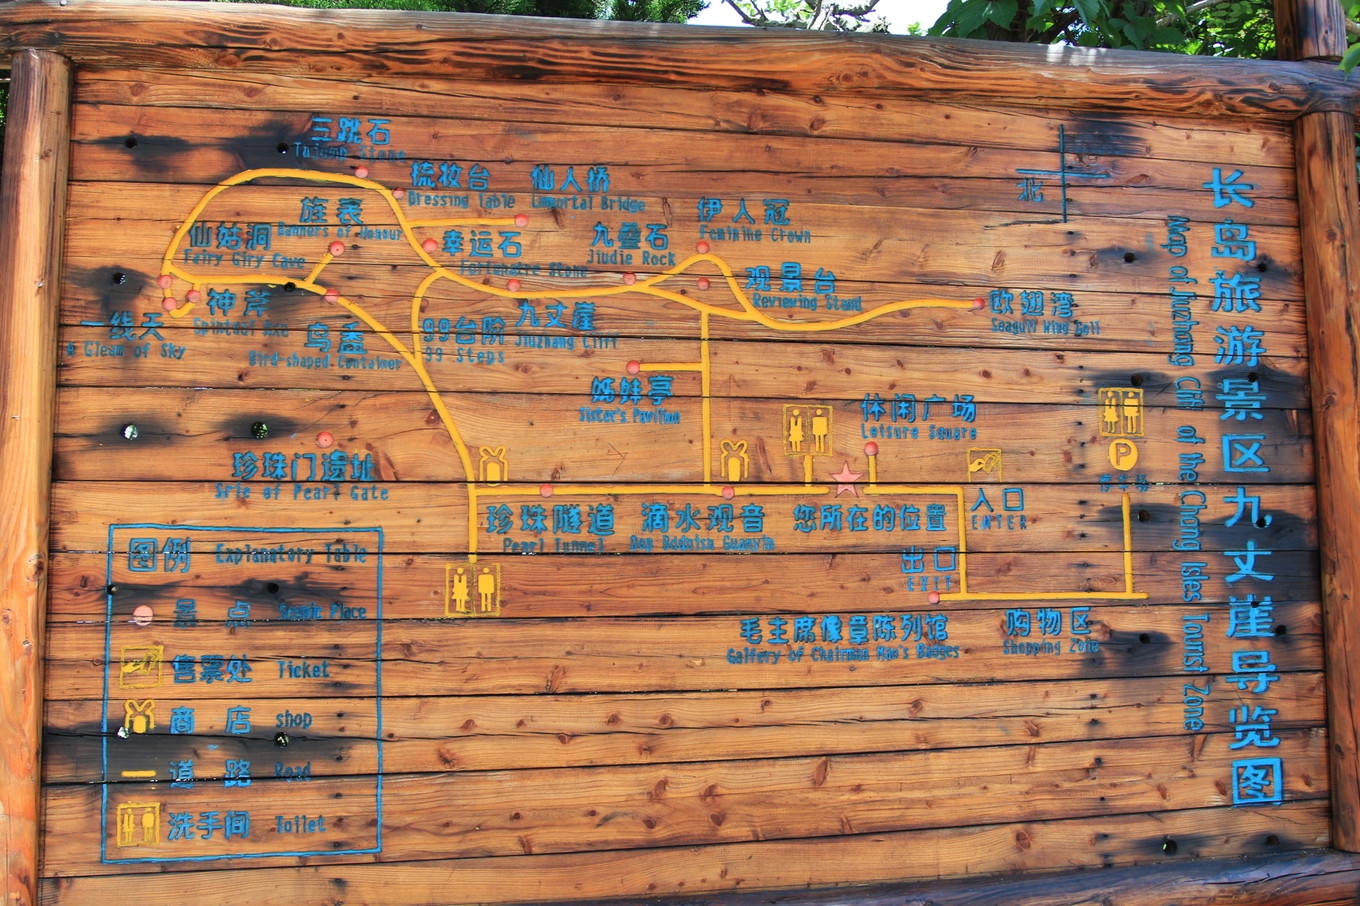 长岛旅游景区九丈崖导览图
Map of Jiuzhang Cliff of the Chang Isles Tourist Zone
北
三跳石
梳妆台
Dressing Table
仙人桥
Immortal Bridge
旌表
Banners of Honour
仙姑洞
Fairy Giry Cave
幸运石
九叠石
Jiudie Rock
伊人冠
Feminine Crown
观景台
Reviewing Stand
欧翅湾
神斧
一线天
A Gleam of Sky
鸟盏
Bird-shaped Container
99台阶
99 Steps
九丈崖
Jiuzhang Cliff
姊妹亭
Sister's Pavilion
休闲广场
Leisure Square
P
停车场
珍珠门遗址
of Pearl Gate
入口
ENTER
珍珠隧道
Pearl Tunnel
滴水观音
您所在的位置
出口
EXIT
毛主席像章陈列馆
Gallery of Chairman Mao's Badges
购物区
Shopping Zone
图例
Explanatory Table
景点
Place
售票处
Ticket
商店
shop
道路
Road
洗手间
Toilet